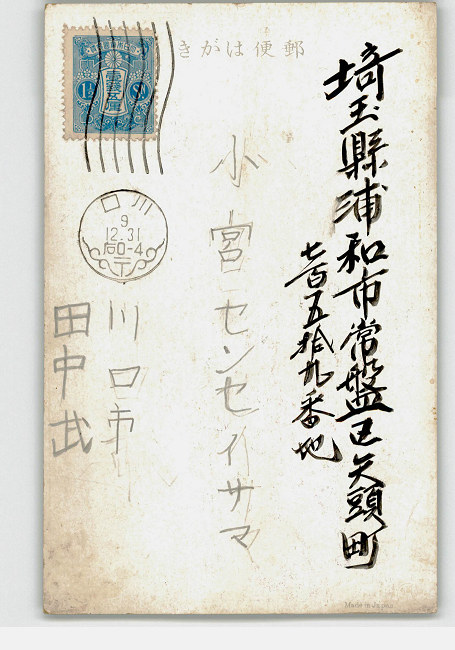 郵便はがき
埼玉縣浦和市常盤区矢頭町
七百五拾九番地
小宮センセイサマ
川口市
田中武
川口
9
12.31
后0-4
1½ Sn
Made in Japan